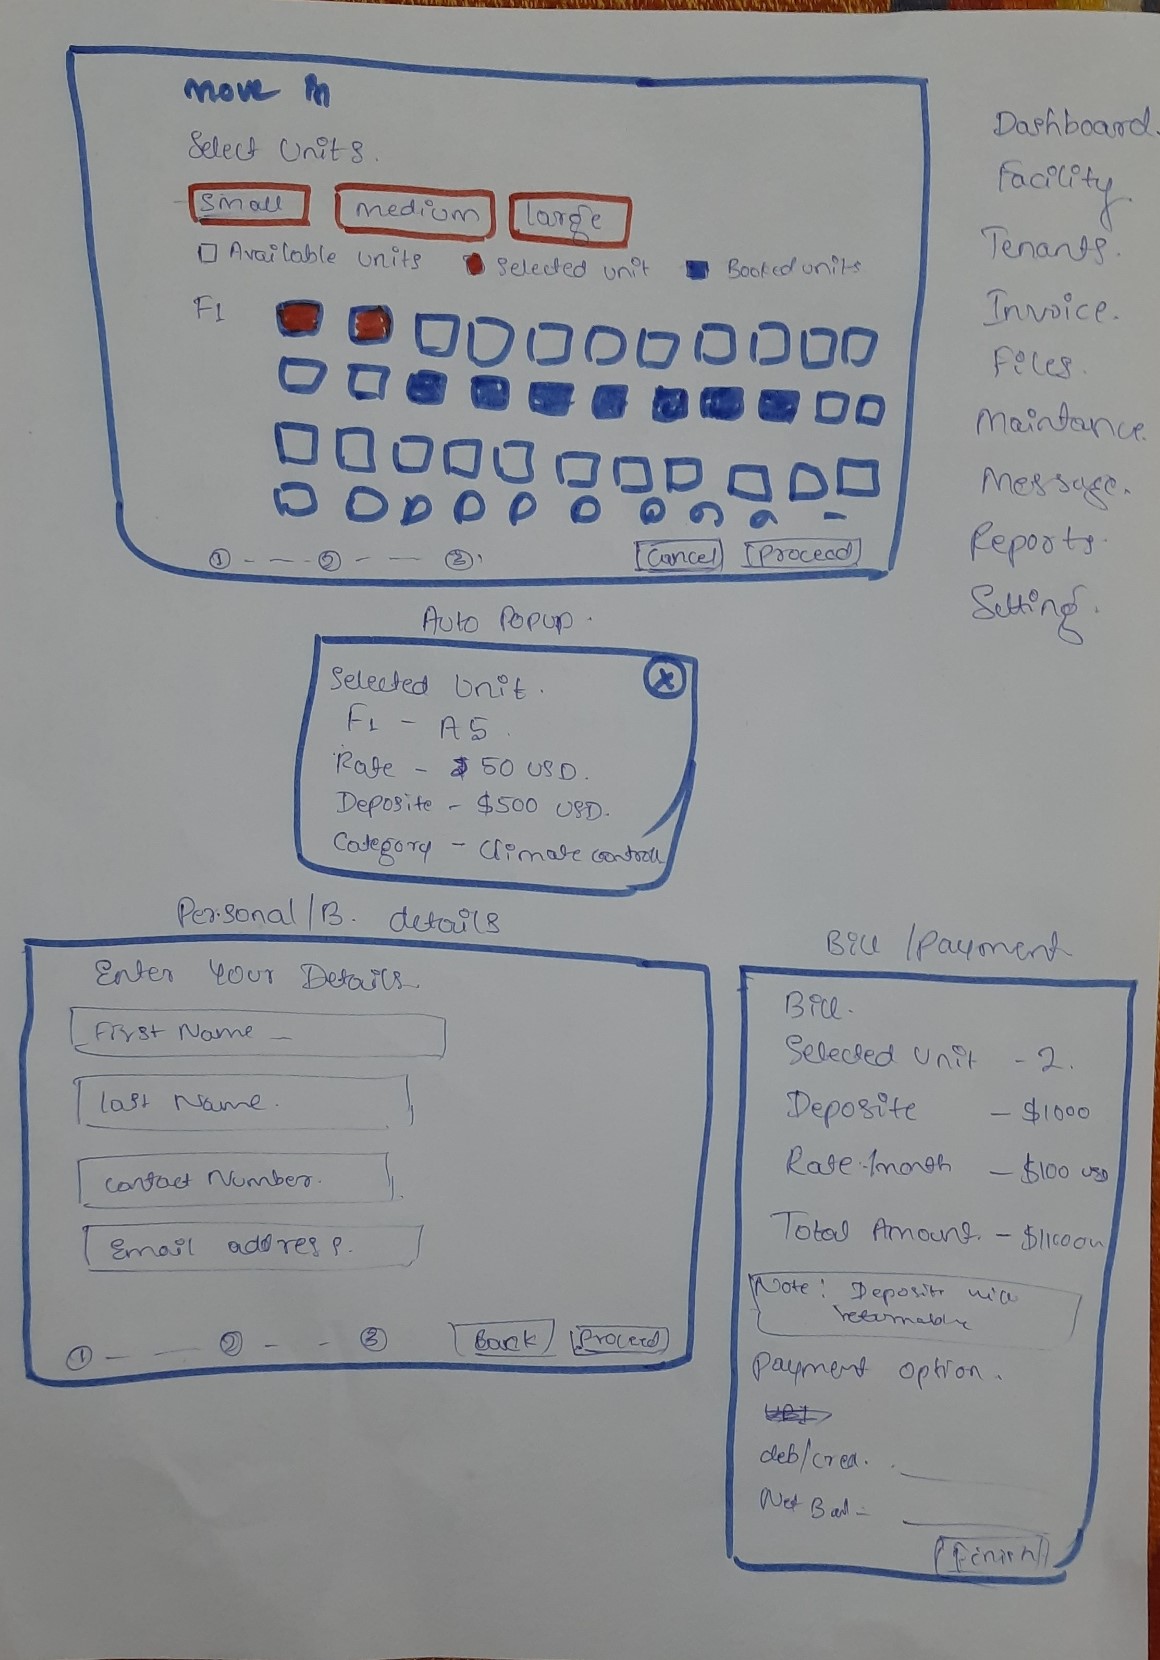 move In
Select Units.
Small medium large
Available units Selected unit Booked units
F1
1 2 3
Cancel Proceed
Dashboard.
Facility
Tenants.
Invoice.
Files.
Maintance.
Message.
Reports.
Setting.
Auto Popup.
Selected Unit. x
F1 - A5.
Rate - $50 USD.
Deposite - $500 USD.
Category - Climate control
Personal/B. details
Enter Your Details
First Name -
last Name.
contact Number.
Email address.
1 2 3
Bank Proceed
Bill /Payment
Bill.
Selected Unit - 2.
Deposite - $1000
Rate/month - $100 USD
Total Amount. -
Note: Deposite
returnable
Payment option.
deb/cred.
Net
Finish